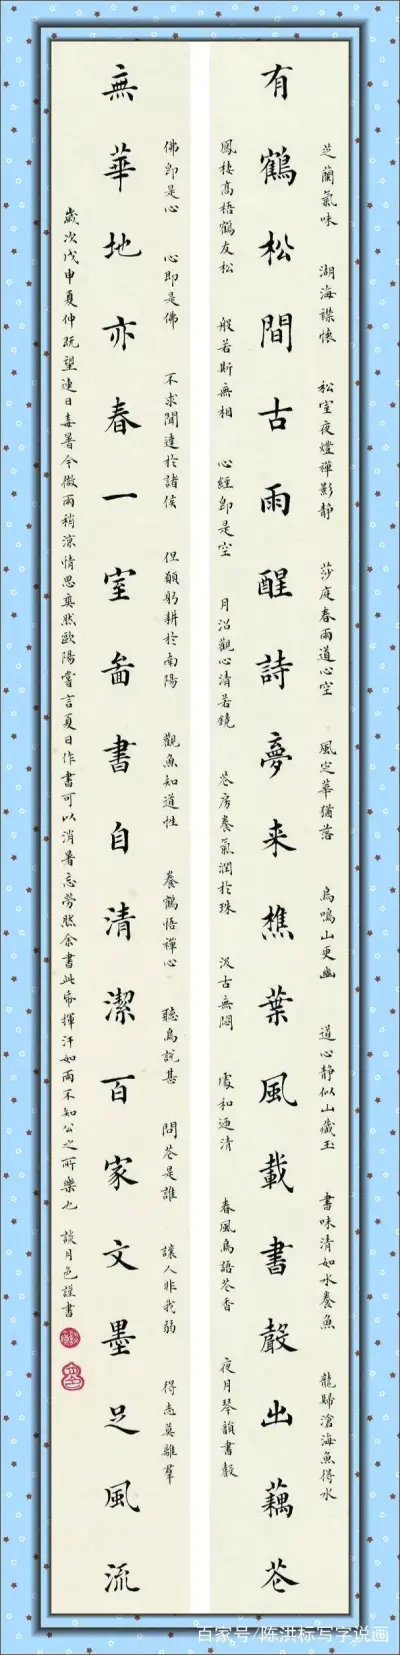 芝蘭氣味 湖海襟懐 松室夜燈禪影静 莎庭春雨道心空 風定華猶落 鳥鳴山更幽 道心静似山藏玉 書味清如水養魚 龍歸滄海魚得水
有鶴松間古雨醒詩夢来樵葉風載書聲出藕芲
鳳棲高梧鶴友松 般若斯無相 心經即是空 月沼觀心清若鏡 芲房養氣潤於珠 汲古無悶 處和迺清 春風鳥語芲香 夜月琴韻書聲
佛即是心 心即是佛 不求聞達於諸侯 但願躬耕於南陽 觀魚知道性 養鶴悟禪心 聽鳥說甚 問芲是誰 讓人非我弱 得志莫離羣
無華地亦春一室啚書自清潔百家文墨足風流
歲次戊申夏仲既望連日毒暑今微雨稍涼情思奭然歐陽嘗言夏日作書可以消暑忘勞然余書此帋揮汗如雨不知公之所樂也 談月色謹書
百家号/陈洪标写字说画